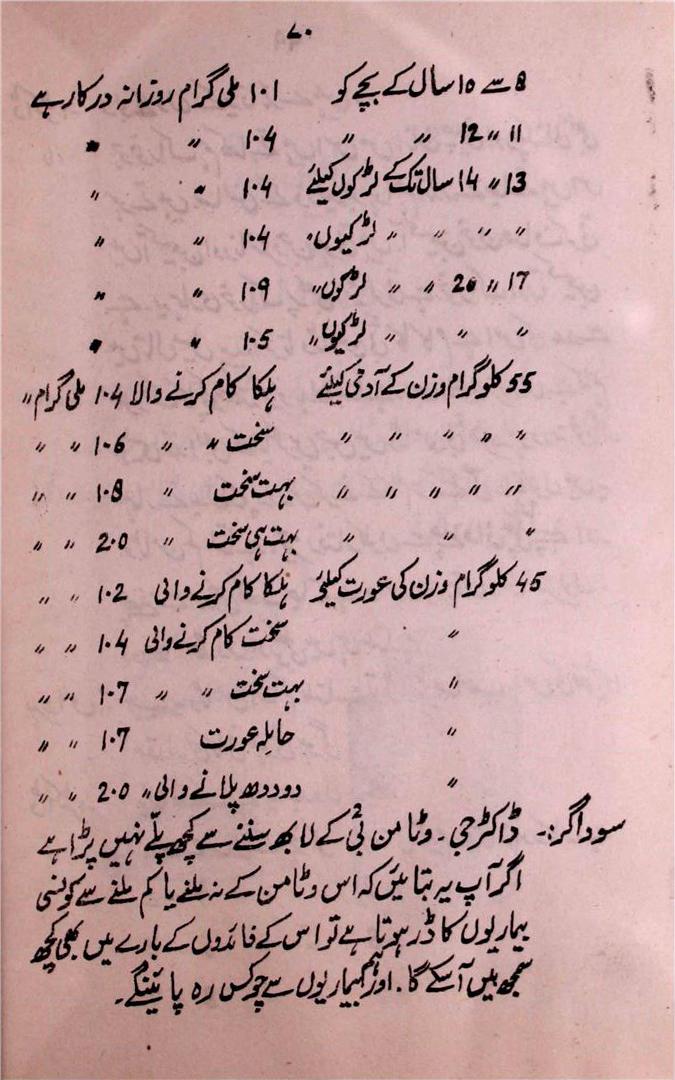 ۷۰
8 سے 10 سال کے بچے کو 1.1 ملی گرام روزانہ درکار ہے
11 〃 12 〃 〃 1.4 〃 〃
13 〃 14 سال تک کے لڑکوں کیلئے 1.4 〃 〃
〃 〃 〃 〃 〃 لڑکیوں 〃 1.4 〃 〃
17 〃 20 〃 〃 لڑکوں 〃 1.9 〃 〃
〃 〃 〃 〃 لڑکیوں 〃 1.5 〃 〃
55 کلوگرام وزن کے آدمی کیلئے ہلکا کام کرنے والا 1.4 ملی گرام 〃
〃 〃 〃 〃 〃 سخت 〃 〃 1.6 〃 〃
〃 〃 〃 〃 〃 بہت سخت 〃 1.8 〃 〃
〃 〃 〃 بہت ہی سخت 〃 2.0 〃 〃
45 کلوگرام وزن کی عورت کیلئے ہلکا کام کرنے والی 1.2 〃 〃
〃 سخت کام کرنے والی 1.4 〃 〃
〃 بہت سخت 〃 〃 1.7 〃 〃
〃 حاملہ عورت 1.7 〃 〃
〃 دوددھ پلانے والی 〃 2.0 〃 〃
سوداگر:۔ ڈاکٹر جی۔ وٹامن بی2 کے لابھ سننے سے کچھ پلّے نہیں پڑا ہے
اگر آپ یہ بتائیں کہ اس وٹامن کے نہ ملنے یا کم ملنے سے کونسی
بیماریوں کا ڈر ہوتا ہے تو اس کے فائدوں کے بارے میں بھی کچھ
سمجھ میں آسکے گا۔ اور ہم بیماریوں سے چوکس رہ پائینگے۔